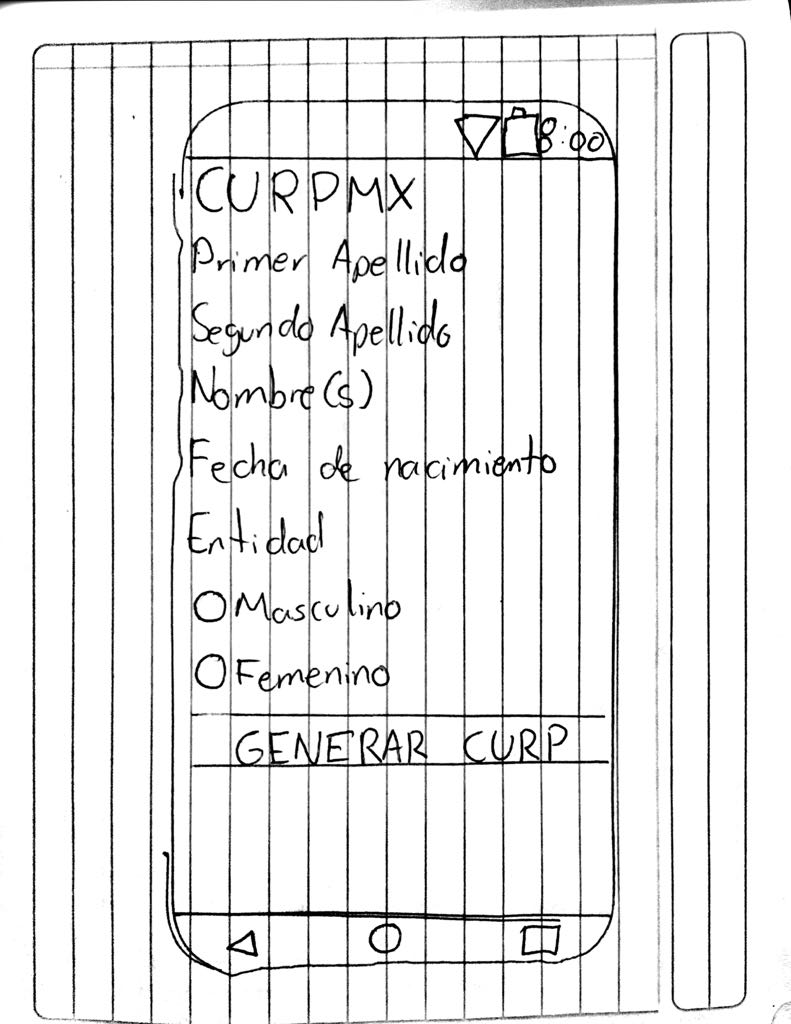 8:00
CURPMX
Primer Apellido
Segundo Apellido
Nombre(s)
Fecha de nacimiento
Entidad
Masculino
Femenino
GENERAR CURP